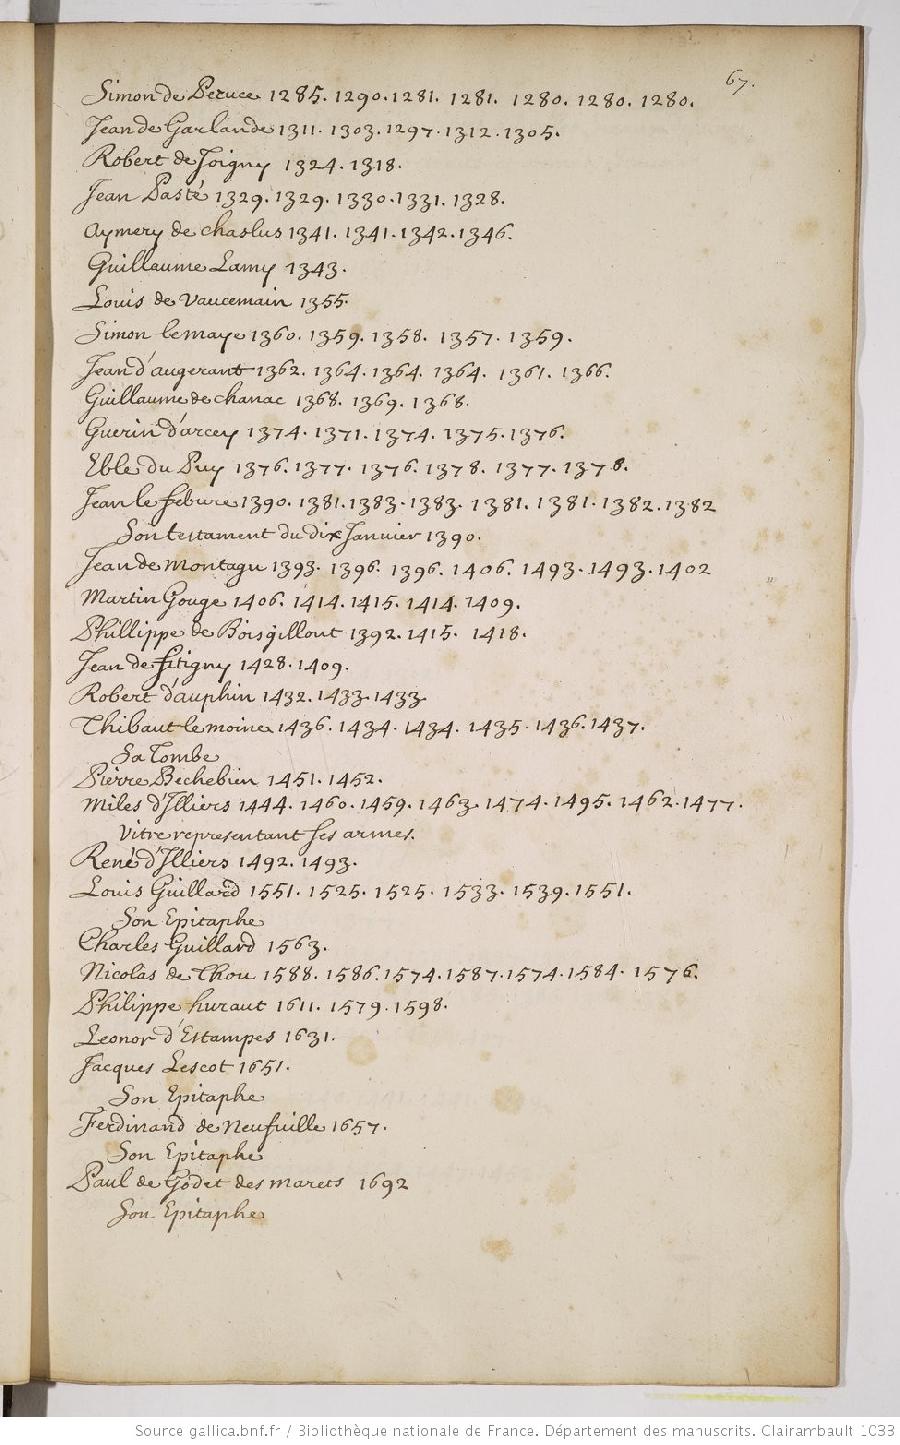 67.
Simon de Peruce 1285. 1290. 1281. 1281. 1280. 1280. 1280.
Jean de Garlande 1311. 1303. 1297. 1312. 1305.
Robert de Joigny 1324. 1318.
Jean Pasté 1329. 1329. 1330. 1331. 1328.
Aymery de chaslus 1341. 1341. 1342. 1346.
Guillaume Lamy 1343.
Louis de Vaucemain 1355.
Simon lemaye 1360. 1359. 1358. 1357. 1359.
Jean d'augerant 1362. 1364. 1364. 1364. 1361. 1366.
Guillaume de chanac 1368. 1369. 1368.
Guerin d'arcey 1374. 1371. 1374. 1375. 1376.
Eble du Puy 1376. 1377. 1376. 1378. 1377. 1378.
Jean le febure 1390. 1381. 1383. 1383. 1381. 1381. 1382. 1382
Son testament du dix Janvier 1390.
Jean de Montagu 1393. 1396. 1396. 1406. 1493. 1493. 1402
Martin Gouge 1406. 1414. 1415. 1414. 1409.
Phillippe de Boisgillout 1392. 1415. 1418.
Jean de fitigny 1428. 1409.
Robert d'auphin 1432. 1433. 1433.
Thibaut lemoine 1436. 1434. 1434. 1435. 1436. 1437.
Sa Tombe
Pierre Bechebien 1451. 1452.
Miles d'Illiers 1444. 1460. 1459. 1463. 1474. 1495. 1462. 1477.
Vitre representant ses armes.
René d'Illiers 1492. 1493.
Louis Guillard 1551. 1525. 1525. 1533. 1539. 1551.
Son Epitaphe
Charles Guillard 1563.
Nicolas de Thou 1588. 1586. 1574. 1587. 1574. 1584. 1576.
Philippe huraut 1611. 1579. 1598.
Leonor d'Estampes 1631.
Jacques Lescot 1651.
Son Epitaphe
Ferdinand de Neufuille 1657.
Son Epitaphe
Paul de Godet des marets 1692
Son Epitaphe
Source gallica.bnf.fr / Bibliothèque nationale de France. Département des manuscrits. Clairambault 1033